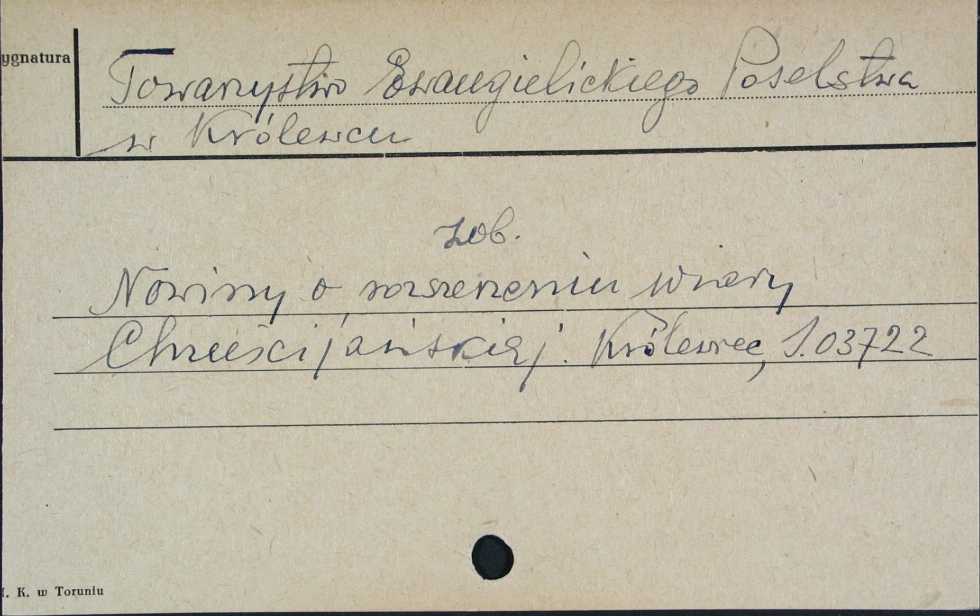 ygnatura
Towarzystwo Ewangielickiego Poselstwa
w Królewcu
zob.
Nowiny o rozszerzeniu wiary
Chrześcijańskiej. Królewiec, S.03722
K. w Toruniu